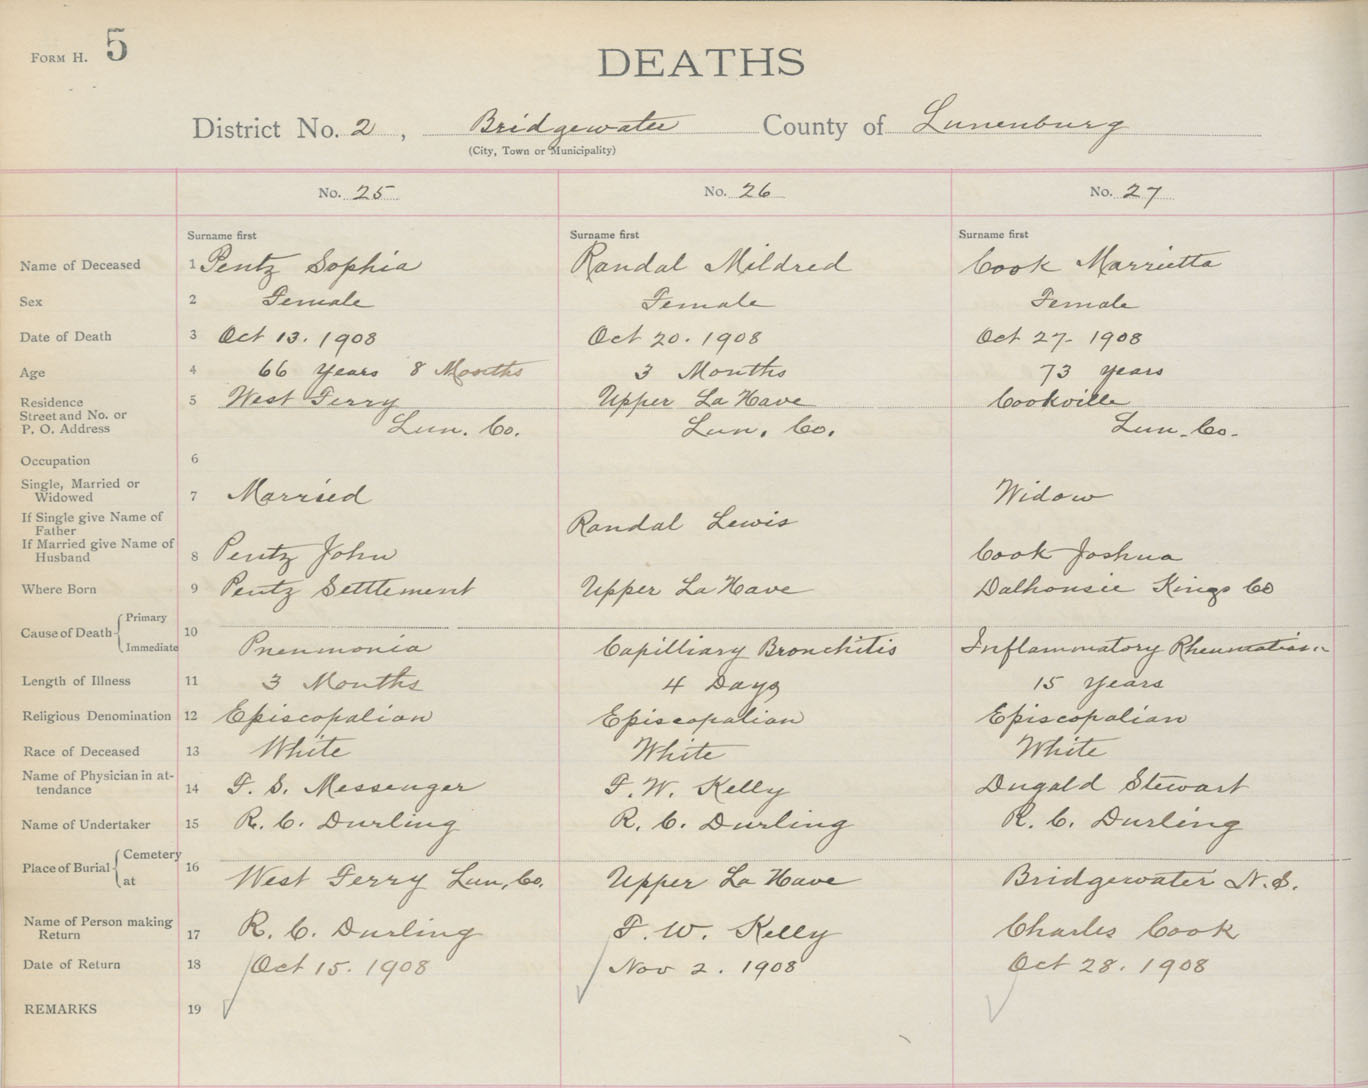 FORM H. 5
DEATHS
District No. 2, Bridgewater County of Lunenburg
(City, Town or Municipality)
No. 25 No. 26 No. 27
Surname first Surname first Surname first
Name of Deceased 1 Pentz Sophia Randal Mildred Cook Marrietta
Sex 2 Female Female Female
Date of Death 3 Oct 13. 1908 Oct 20. 1908 Oct 27. 1908
Age 4 66 years 8 Months 3 Months 73 years
Residence 5 West Ferry Upper La Have Cookville
Street and No. or
P. O. Address Lun. Co. Lun. Co. Lun. Co.
Occupation 6
Single, Married or
Widowed 7 Married Widow
If Single give Name of
Father Randal Lewis
If Married give Name of
Husband 8 Pentz John Cook Joshua
Where Born 9 Pentz Settlement Upper La Have Dalhousie Kings Co
Primary
Cause of Death 10
Immediate Pneumonia Capilliary Bronchitis Inflammatory Rheumatism
Length of Illness 11 3 Months 4 Days 15 years
Religious Denomination 12 Episcopalian Episcopalian Episcopalian
Race of Deceased 13 White White White
Name of Physician in at-
tendance 14 F. S. Messenger F. W. Kelly Dugald Stewart
Name of Undertaker 15 R. C. Durling R. C. Durling R. C. Durling
Cemetery
Place of Burial 16
at West Ferry Lun. Co. Upper La Have Bridgewater N. S.
Name of Person making
Return 17 R. C. Durling F. W. Kelly Charles Cook
Date of Return 18 Oct 15. 1908 Nov 2. 1908 Oct 28. 1908
REMARKS 19